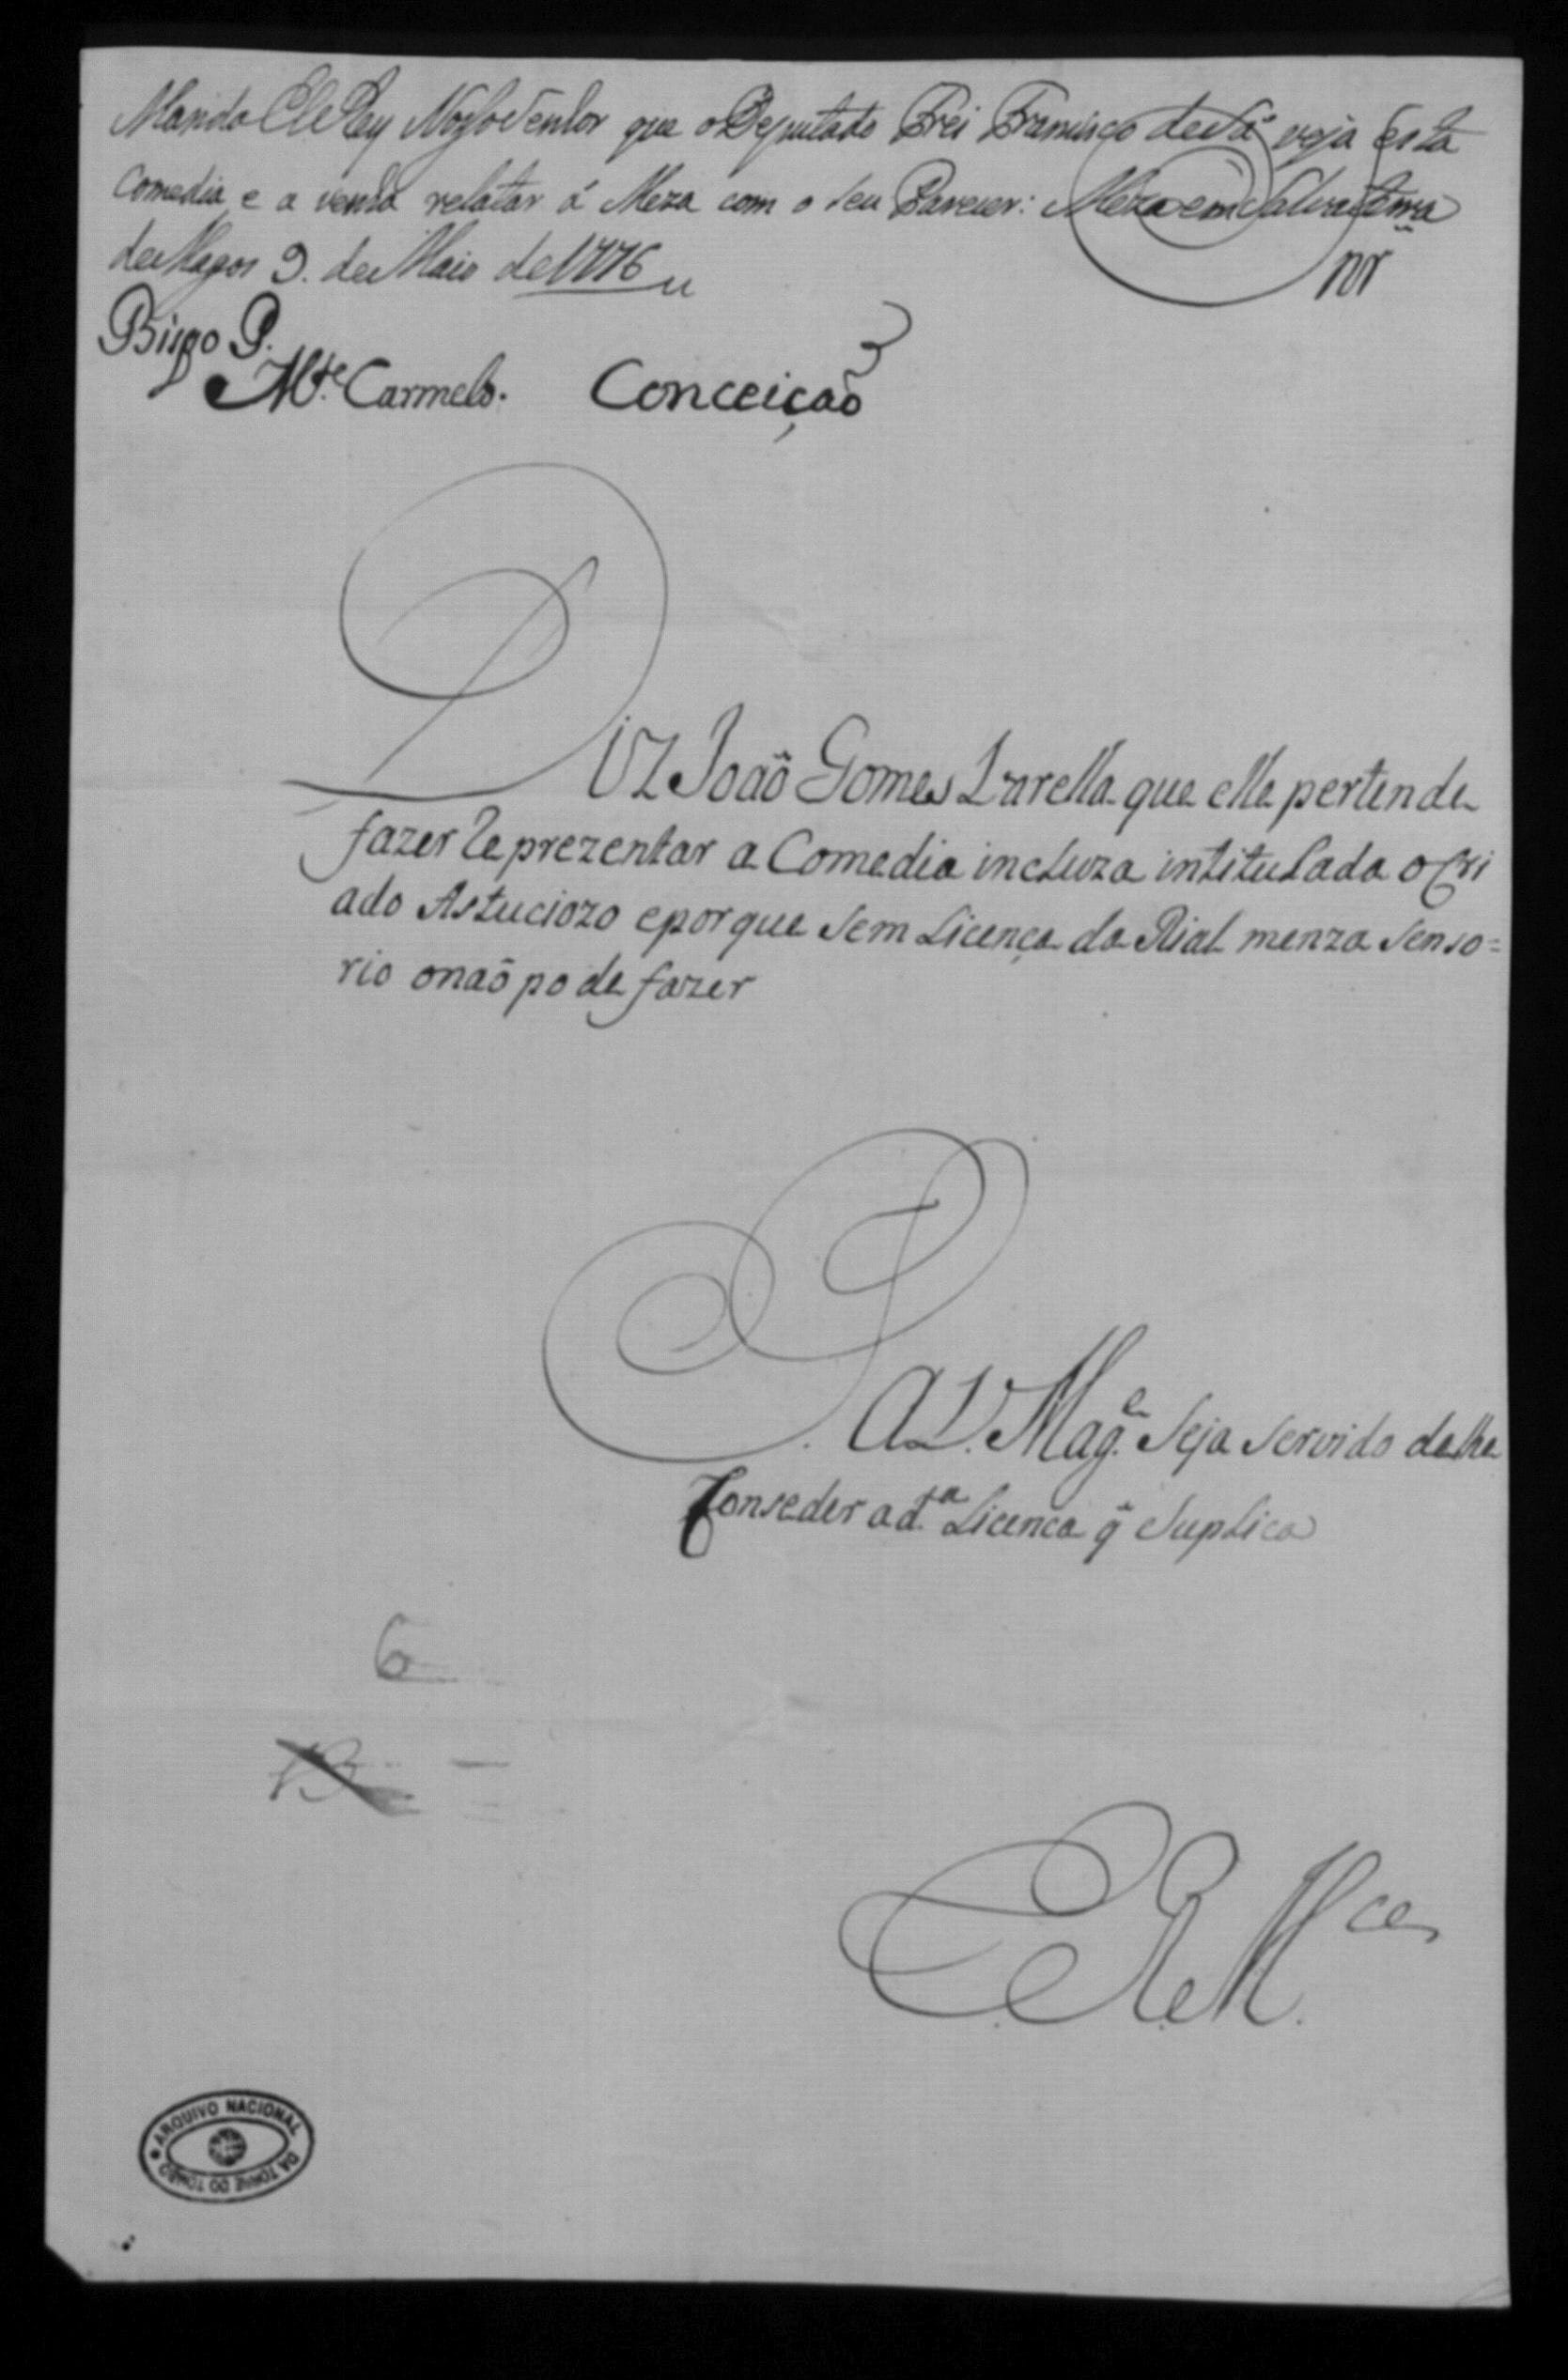 Manda ElRey Nosso Senhor que o Deputado Frei Francisco de Sá veja esta
Comedia, e a venha relatar á Meza com o seu Parecer: Meza em Salvaterra
de Magos 9. de Maio de 1776
Bispo P.
Mte. Carmelo. Conceição
Snr
Diz João Gomes Varella que elle pertende
fazer Reprezentar a Comedia incluza intitulada o Cri
ado Astuciozo e porque sem Licença da Rial menza senso=
rio onaõ pode fazer
P. A V. Mag.e Seja Servido de lhe
Conseder a d.ta Licenca q̃ Suplica
6
13
E. R. M.ce
ARQUIVO NACIONAL DA TORRE DO TOMBO